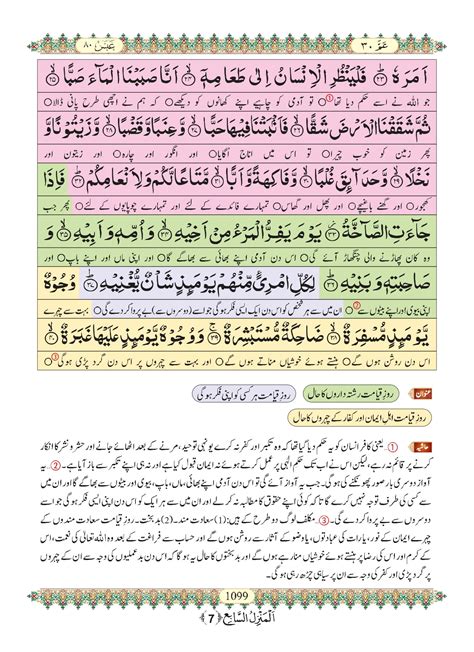 عَبَسَ ٨٠
عَمَّ ٣٠
اَمَرَهٗ ﴿۲۳﴾ فَلْیَنْظُرِ الْاِنْسَانُ اِلٰی طَعَامِهٖۤ ﴿۲۴﴾ اَنَّا صَبَبْنَا الْمَآءَ صَبًّا ﴿۲۵﴾
جو اللہ نے اسے حکم دیا تھا ① تو آدمی کو چاہیے اپنے کھانوں کو دیکھے کہ ہم نے اچھی طرح پانی ڈالا
ثُمَّ شَقَقْنَا الْاَرْضَ شَقًّا ﴿۲۶﴾ فَاَنْۢبَتْنَا فِیْهَا حَبًّا ﴿۲۷﴾ وَّ عِنَبًا وَّ قَضْبًا ﴿۲۸﴾ وَّ زَیْتُوْنًا وَّ
پھر زمین کو خوب چیرا تو اس میں اناج اگایا اور انگور اور چارہ اور زیتون اور
نَخْلًا ﴿۲۹﴾ وَّ حَدَآىٕقَ غُلْبًا ﴿۳۰﴾ وَّ فَاكِهَةً وَّ اَبًّا ﴿۳۱﴾ مَّتَاعًا لَّكُمْ وَ لِاَنْعَامِكُمْ ﴿۳۲﴾ فَاِذَا
کھجور اور گھنے باغیچے اور پھل اور گھاس تمہارے فائدے کے لئے اور تمہارے چوپایوں کے لئے پھر جب
جَآءَتِ الصَّآخَّةُ ﴿۳۳﴾ یَوْمَ یَفِرُّ الْمَرْءُ مِنْ اَخِیْهِ ﴿۳۴﴾ وَ اُمِّهٖ وَ اَبِیْهِ ﴿۳۵﴾ وَ
وہ کان پھاڑنے والی چنگھاڑ آئے گی اس دن آدمی اپنے بھائی سے بھاگے گا اور اپنی ماں اور اپنے باپ اور
صَاحِبَتِهٖ وَ بَنِیْهِ ﴿۳۶﴾ لِكُلِّ امْرِئٍ مِّنْهُمْ یَوْمَىٕذٍ شَاْنٌ یُّغْنِیْهِ ﴿۳۷﴾ وُجُوْهٌ
اپنی بیوی اور اپنے بیٹوں سے ② ان میں سے ہر شخص کو اس دن ایک ایسی فکر ہوگی جو اسے (دوسروں سے) بے پروا کردے گی بہت سے چہرے
یَّوْمَىٕذٍ مُّسْفِرَةٌ ﴿۳۸﴾ ضَاحِكَةٌ مُّسْتَبْشِرَةٌ ﴿۳۹﴾ وَ وُجُوْهٌ یَّوْمَىٕذٍ عَلَیْهَا غَبَرَةٌ ﴿۴۰﴾
اس دن روشن ہوں گے ہنستے ہوئے خوشیاں مناتے ہوں گے اور بہت سے چہروں پر اس دن گرد پڑی ہوگی ③
عنوان روزِ قیامت رشتہ داروں کا حال روزِ قیامت ہر کسی کو اپنی فکر ہوگی
روزِ قیامت اہلِ ایمان اور کفار کے چہروں کا حال
حاشیہ ①۔ یعنی کافر انسان کو یہ حکم دیا گیا تھا کہ وہ تکبر اور کفر نہ کرے یونہی توحید، مرنے کے بعد اٹھائے جانے اور حشر و نشر کا انکار
کرنے پر قائم نہ رہے، لیکن اس نے اب تک حکمِ الٰہی پر عمل کرتے ہوئے نہ ایمان قبول کیا ہے اور نہ ہی اپنے تکبر سے باز آیا ہے۔ ②۔ یہ
آواز دوسری بار صور پھونکنے کی ہوگی۔ جب یہ آواز آئے گی تو اس دن آدمی اپنے بھائی، ماں، باپ، بیوی اور بیٹوں سے بھاگے گا اور ان میں
سے کسی کی طرف توجہ نہیں کرے گا تاکہ کوئی اپنے حقوق کا مطالبہ نہ کرلے اور ان میں سے ہر ایک کو ایسی فکر ہوگی جو اسے
دوسروں سے بے پروا کردے گی۔ ③۔ مکلف لوگ دو طرح کے ہیں: (1) سعادت مند۔ (2) بدبخت۔ روزِ قیامت سعادت مندوں کے
چہرے ایمان کے نور، یا رات کی عبادتوں، یا وضو کے آثار سے روشن ہوں گے اور حساب سے فراغت کے بعد وہ اللہ تعالیٰ کی نعمت، اس
کے کرم اور اس کی رضا پر ہنستے ہوئے خوشیاں منارہے ہوں گے اور بدبختوں کا حال یہ ہوگا کہ اس دن بدعملیوں کی وجہ سے ان کے چہروں
پر گرد پڑی اور کفر کی وجہ سے ان پر سیاہی چڑھ رہی ہوگی۔
1099
اَلْمَنْزِلُ السَّابِعُ ﴿7﴾